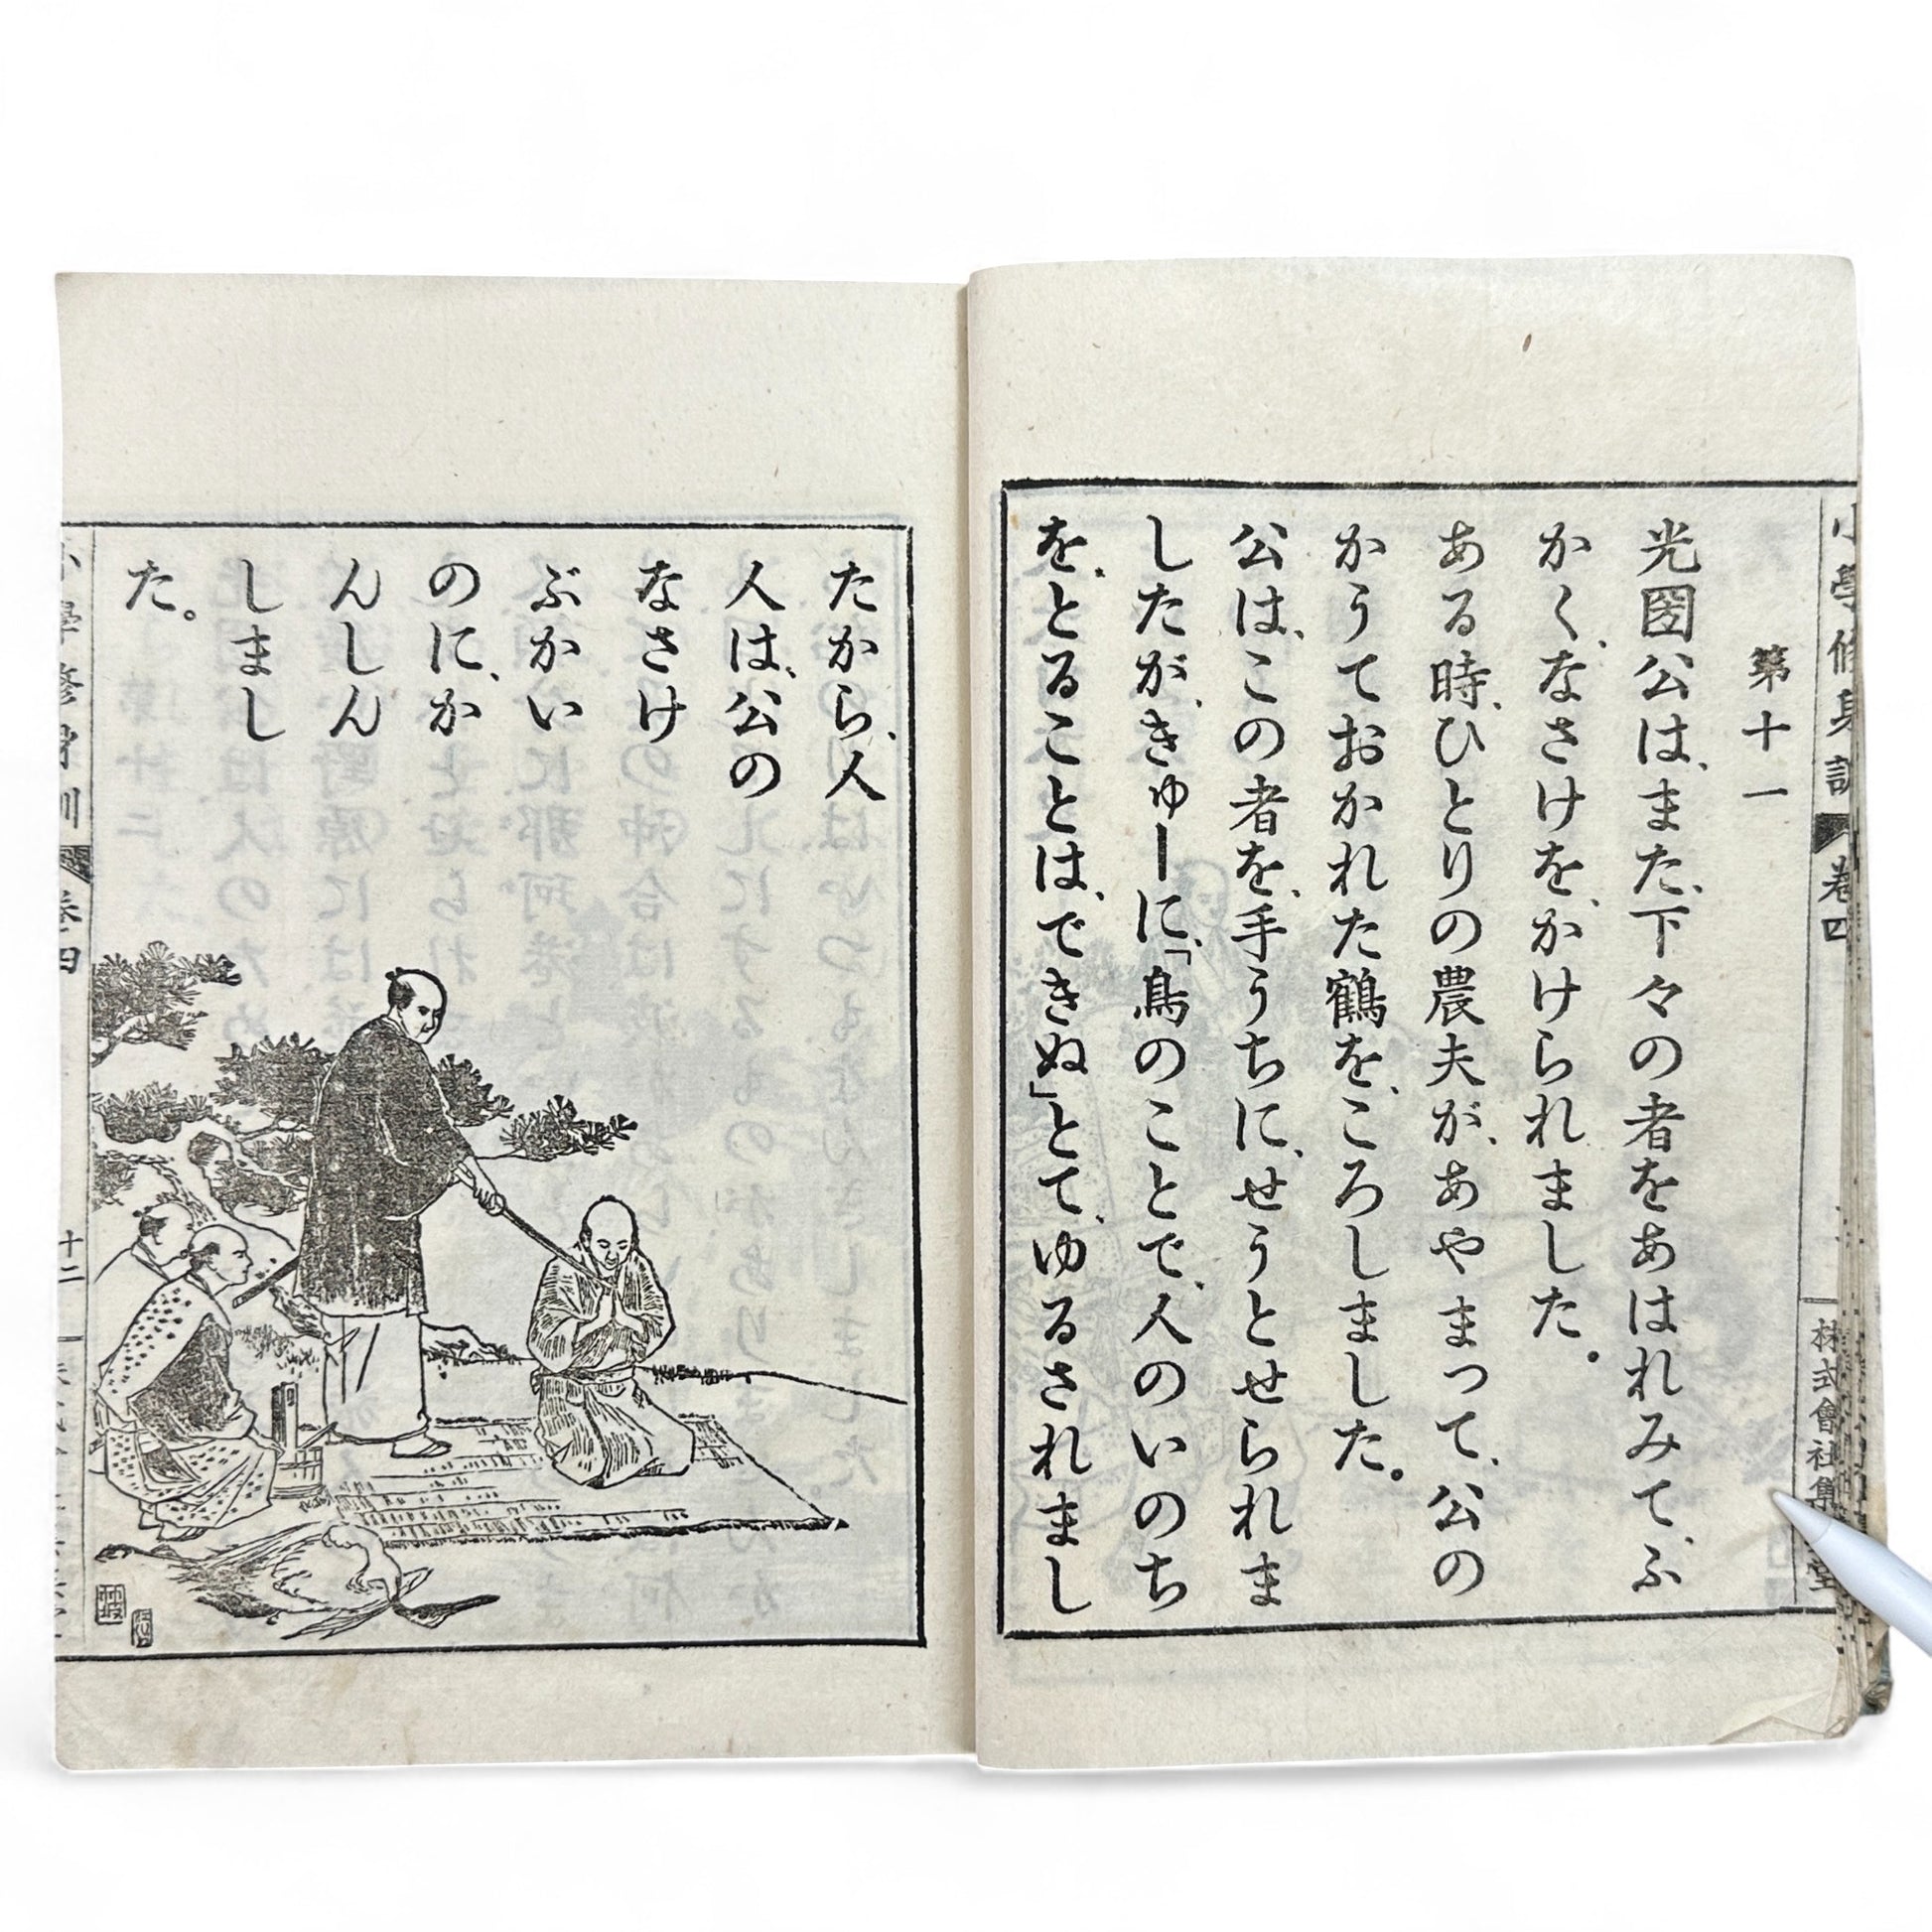 小學修身訓 卷四 株式會社集 堂
第十一
光圀公は、また、下々の者をあはれみて、ふ
かく、なさけを、かけられました。
ある時、ひとりの農夫が、あやまって、公の
かうておかれた鶴を、ころしました。
公は、この者を、手うちに、せうとせられま
したが、きゅーに、「鳥のことで、人のいのち
を、とることは、できぬ」とて、ゆるされまし
たから、人
人は、公の
なさけ
ぶかい
のに、か
んしん
しまし
た。
小學修身訓 卷四 十二